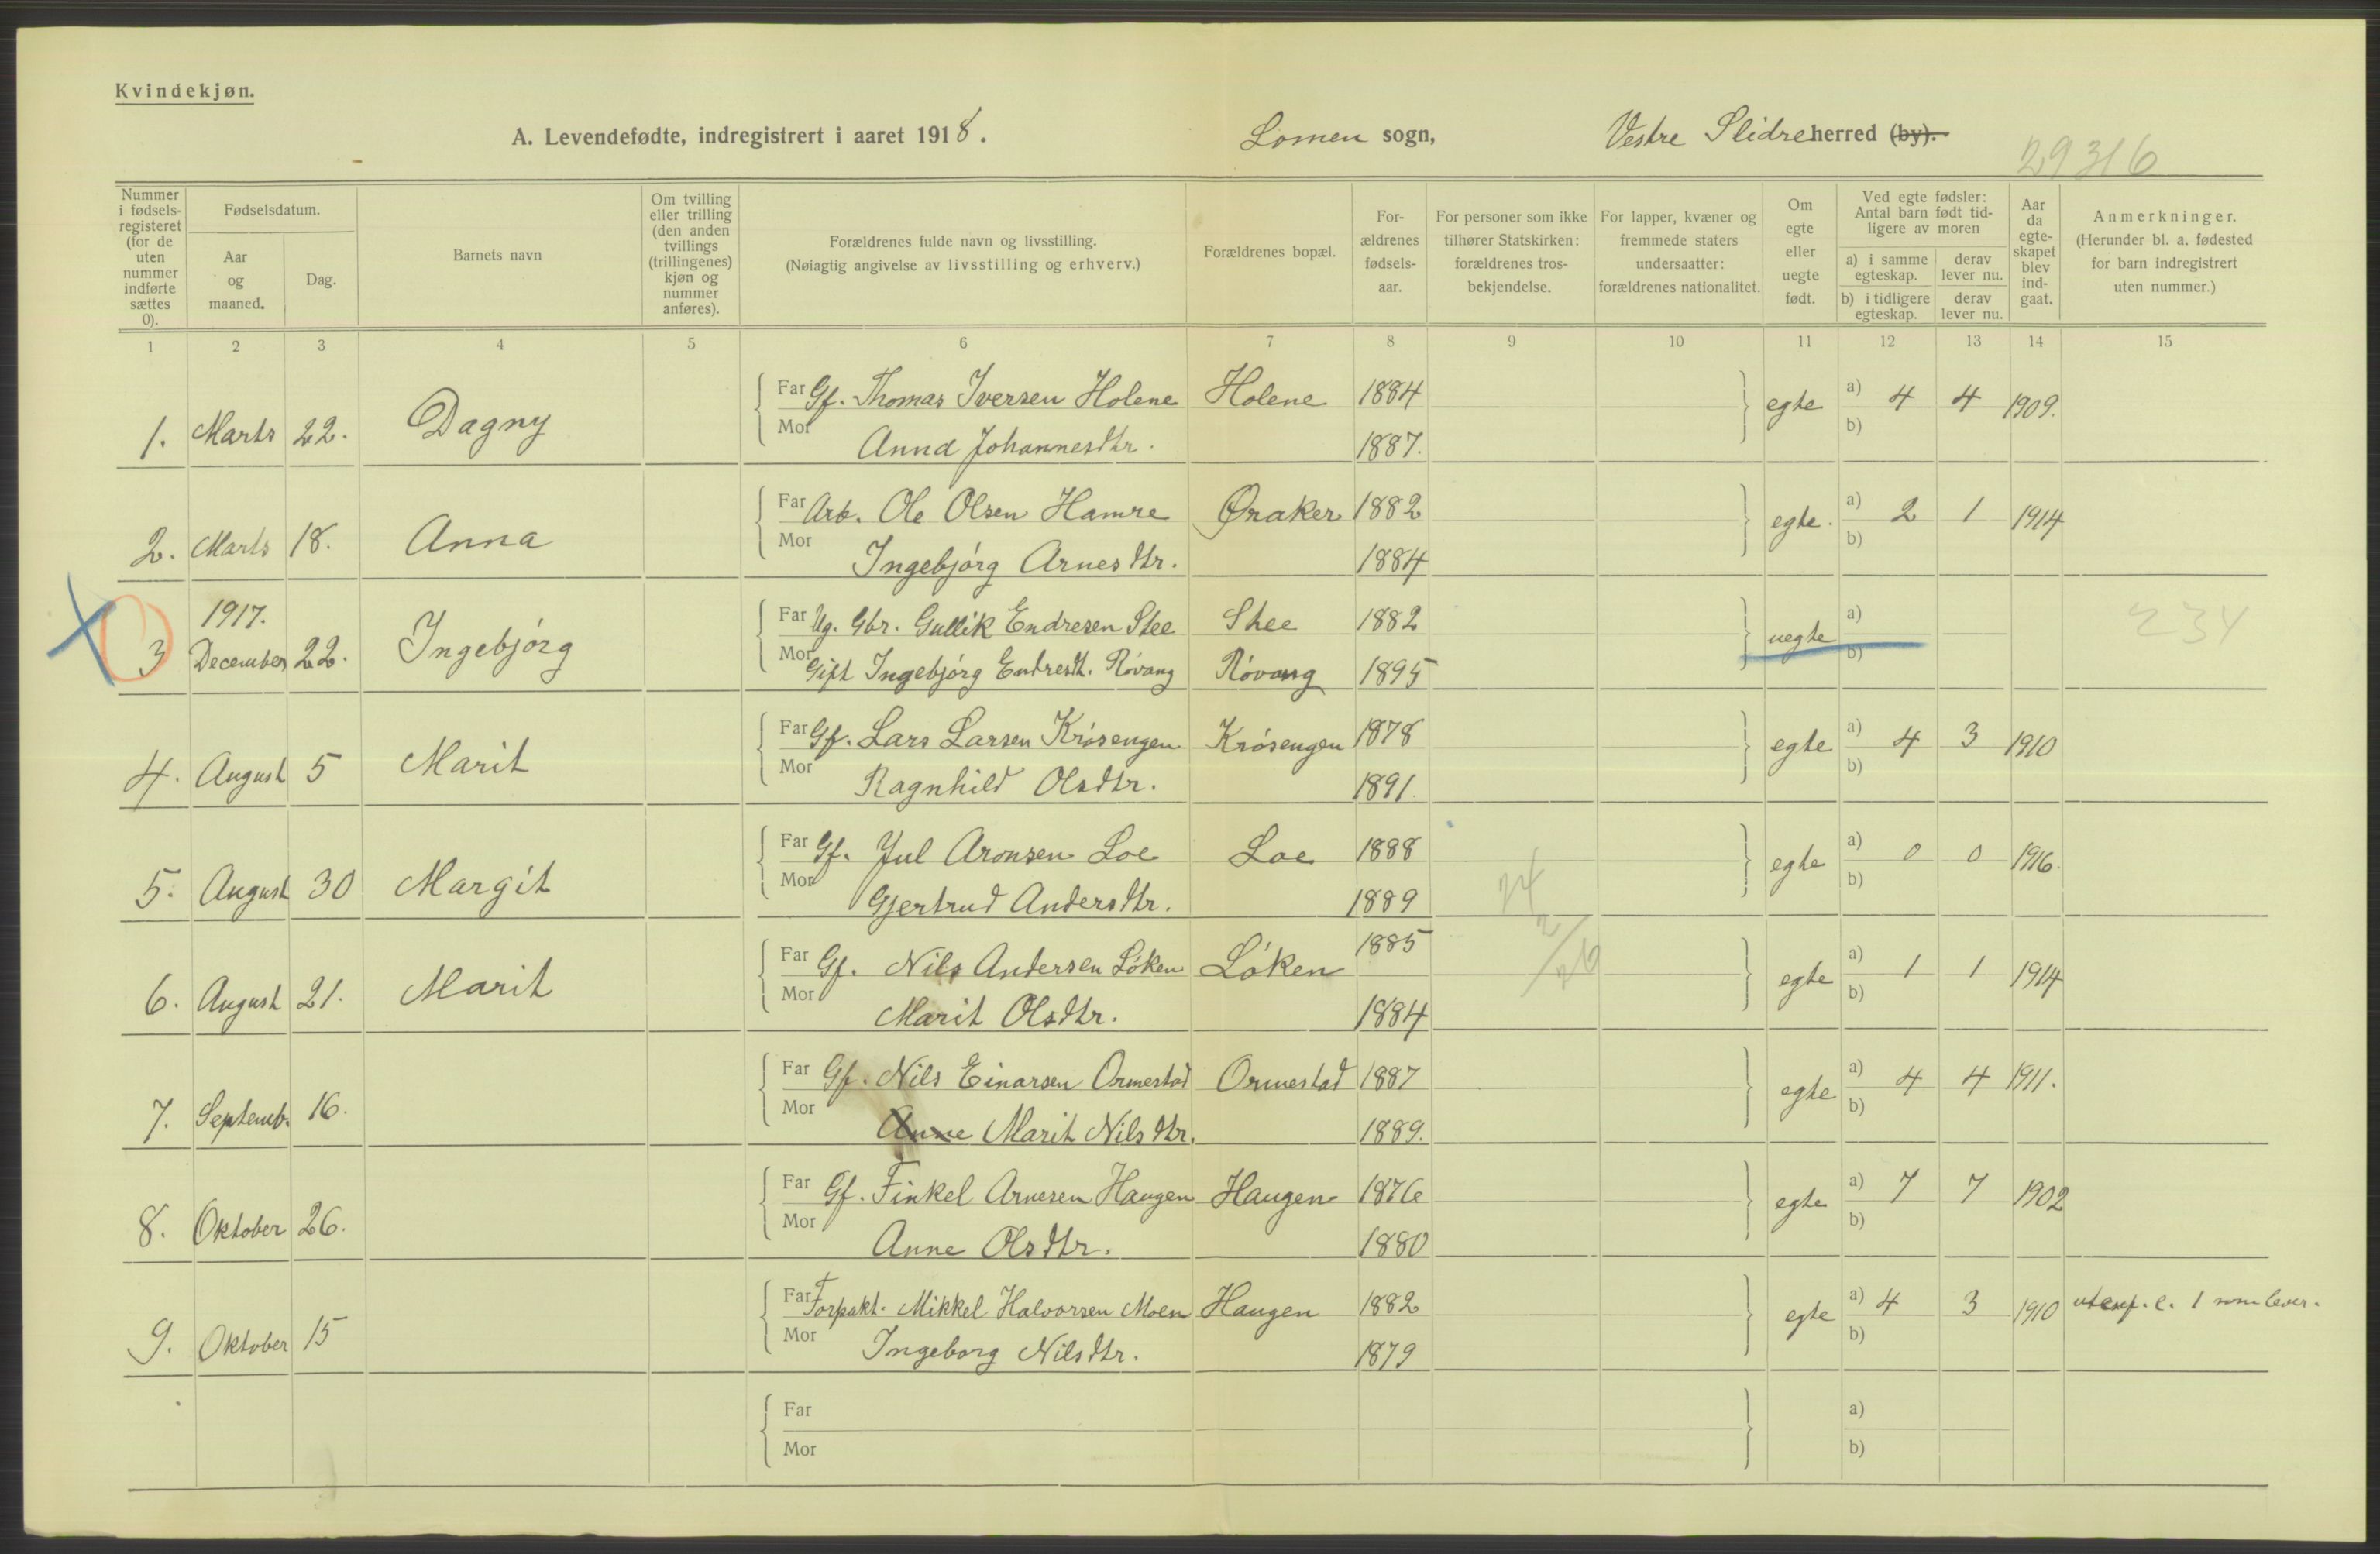 Kvindekjøn.
A. Levendefødte, indregistrert i aaret 1918. Lomen sogn, Vestre Slidre herred (by).
29316
Nummer i fødselsregisteret (for de uten nummer indførte sættes 0).
Fødselsdatum.
Aar og maaned.
Dag.
Barnets navn
Om tvilling eller trilling (den anden tvillings (trillingenes) kjøn og nummer anføres).
Forældrenes fulde navn og livsstilling.
(Nøiagtig angivelse av livsstilling og erhverv.)
Forældrenes bopæl.
Forældrenes fødselsaar.
For personer som ikke tilhører Statskirken: forældrenes trosbekjendelse.
For lapper, kvæner og fremmede staters undersaatter: forældrenes nationalitet.
Om egte eller uegte født.
Ved egte fødsler: Antal barn født tidligere av moren
a) i samme egteskap.
derav lever nu.
b) i tidligere egteskap.
derav lever nu.
Aar da egteskapet blev indgaat.
Anmerkninger.
(Herunder bl. a. fødested for barn indregistrert uten nummer.)
1 2 3 4 5 6 7 8 9 10 11 12 13 14 15
Far Gf. Thomas Iversen Holene Holene 1884
1. Marts 22. Dagny egte a) 4 4 1909.
Mor b)
Anna Johannesdtr. 1887.
Far Arb. Ole Olsen Hamre Øraker 1882
2. Marts 18. Anna egte. a) 2 1 1914
Mor b)
Ingebjórg Arnesdtr. 1884
1917.
Far Ug. Gbr. Gullik Endresen Stee Shee 1882
3 December 22. Ingebjórg uegte a) 234
Mor b)
Gift Ingebjórg Endresdt. Róvang Róvang 1895
Far Gf. Lars Larsen Krósengen Krósengen 1878
4. August 5 Marit egte a) 4 3 1910
Mor b)
Ragnhild Olsdtr. 1891.
Far Gf. Jul Aronsen Loe Loe 1888
5. August 30 Margit egte a) 0 0 1916.
Mor b)
Gjertrud Andersdtr. 1889
Far Gf. Nils Andersen Lóken Lóken 1885
6. August 21. Marit egte a) 1 1 1914
Mor b)
Marit Olsdtr. 1884
Far Gf. Nils Einarsen Ormestad Ormestad 1887
7. Septemb. 16. egte a) 4 4 1911.
Mor b)
Anne Marit Nilsdtr. 1889.
Far Gf. Finkel Arnesen Haugen Haugen 1876
8. Oktober 26. egte a) 7 7 1902
Mor b)
Anne Olsdtr. 1880
Far Forpakt. Mikkel Halvorsen Moen Haugen 1882
9. Oktober 15 egte a) 4 3 1910 1 som lever.
Mor b)
Ingeborg Nilsdtr. 1879
Far a)
Mor b)